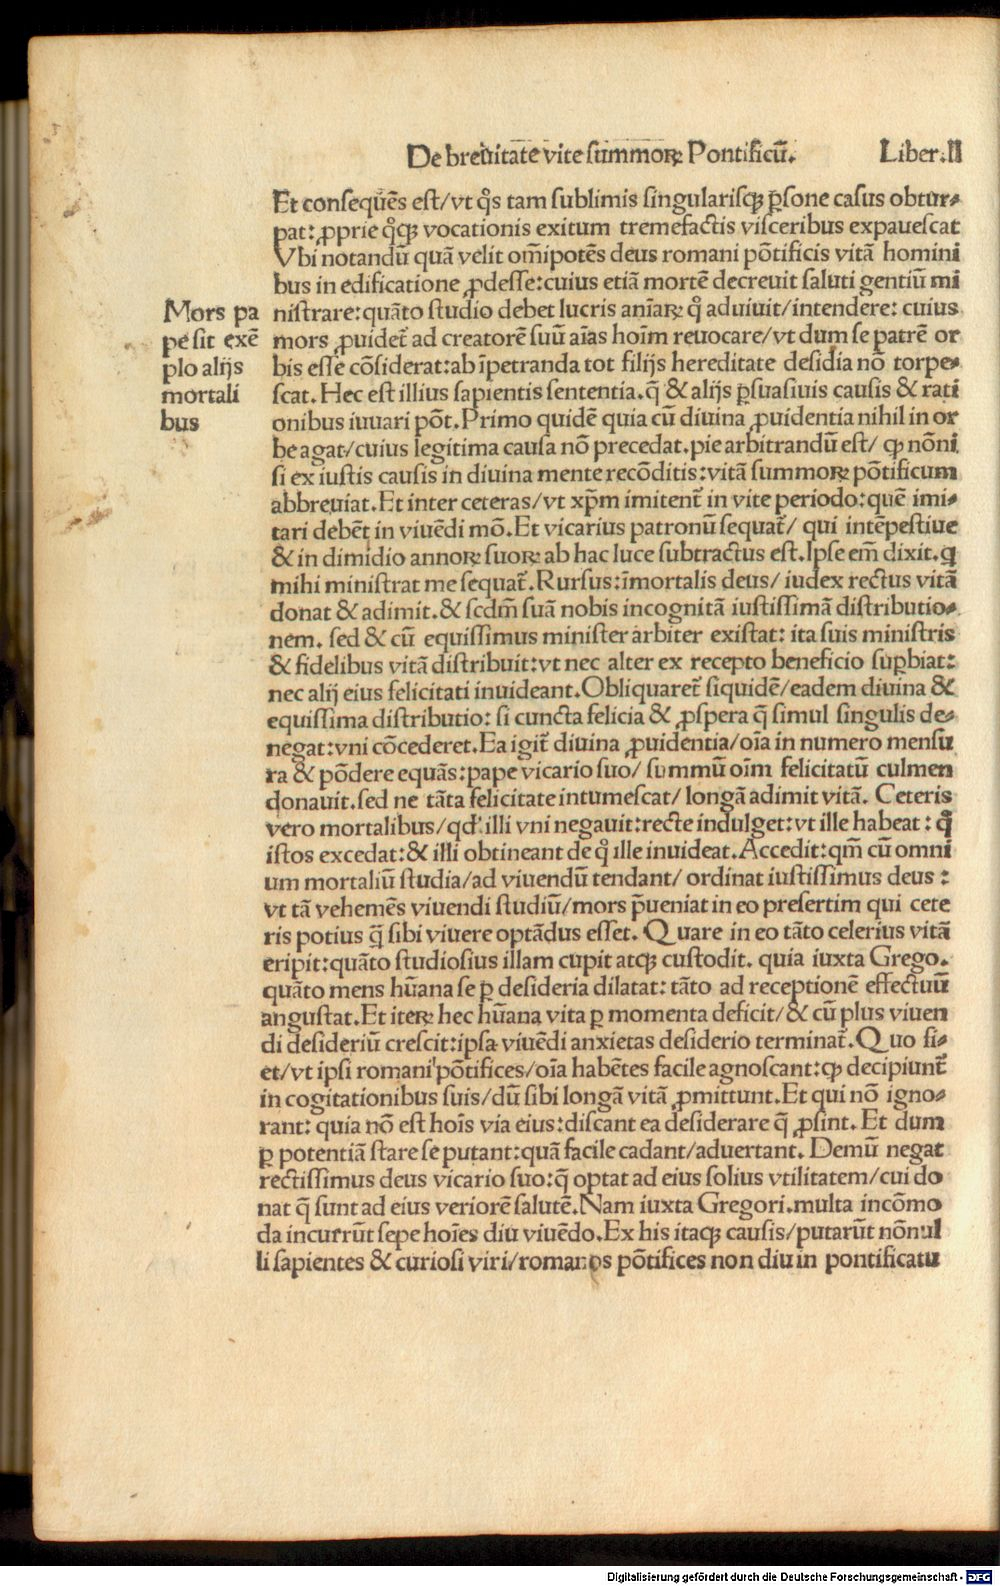 De breuitate vite summoꝝ Pontificū.
Liber.II
Et conseqūēs est/vt q̊s tam sublimis singularisqꝫ p̄sone casus obtur⸗
pat: ꝓprie q̊qꝫ vocationis exitum tremefactis visceribus expauescat
Vbi notandū quā velit om̄ipotēs deus romani pōtificis vitā homini
bus in edificatione ꝓdesse:cuius etiā mortē decreuit saluti gentiū mi
nistrare:quāto studio debet lucris anīaꝝ q̊ aduiuit/intendere: cuius
mors ꝓuidet᷑ ad creatorē suū aīas hoīm reuocare/vt dum se patrē or
bis esse cōsiderat:ab īpetranda tot filijs hereditate desidia nō torpe⸗
scat. Hec est illius sapientis sententia.q̄ & alijs p̄suasiuis causis & rati
onibus iuuari pōt. Primo quidē quia cū diuina ꝓuidentia nihil in or
be agat/cuius legitima causa nō precedat.pie arbitrandū est/ ꝙ nōni
si ex iustis causis in diuina mente recōditis:vitā summoꝝ pōtificum
abbreuiat.Et inter ceteras/vt xp̄m imitent᷑ in vite periodo:quē imi⸗
tari debēt in viuēdi mō.Et vicarius patronū sequat᷑/ qui intēpestiue
& in dimidio annoꝝ suoꝝ ab hac luce subtractus est.Ipse em̄ dixit.q
mihi ministrat me sequat᷑.Rursus:īmortalis deus/ iudex rectus vitā
donat & adimit.& scdm̄ suā nobis incognitā iustissimā distributio⸗
nem. sed & cū equissimus minister arbiter existat: ita suis ministris
& fidelibus vitā distribuit:vt nec alter ex recepto beneficio suꝑbiat:
nec alij eius felicitati inuideant.Obliquaret᷑ siquidē/eadem diuina &
equissima distributio: si cuncta felicia & ꝓspera q̄ simul singulis de⸗
negat:vni cōcederet.Ea igit᷑ diuina ꝓuidentia/oīa in numero mensu
ra & pōdere equās:pape vicario suo/ summū oīm felicitatū culmen
donauit.sed ne tāta felicitate intumescat/ longā adimit vitā. Ceteris
vero mortalibus/qd᷑ illi vni negauit:recte indulget:vt ille habeat : q̊
istos excedat:& illi obtineant de q̊ ille inuideat.Accedit:qm̄ cū omni
um mortaliū studia/ad viuendū tendant/ ordinat iustissimus deus :
vt tā vehemēs viuendi studiū/mors p̄ueniat in eo presertim qui cete
ris potius q̄ sibi viuere optādus esset. Quare in eo tāto celerius vitā
eripit:quāto studiosius illam cupit atqꝫ custodit. quia iuxta Grego.
quāto mens hūana se ꝑ desideria dilatat: tāto ad receptionē effectuū
angustat.Et iteꝝ hec hūana vita ꝑ momenta deficit/& cū plus viuen
di desideriū crescit:ipsa viuēdi anxietas desiderio terminat᷑.Quo fi⸗
et/vt ipsi romani pōtifices/oīa habētes facile agnoscant:ꝙ decipiunt᷑
in cogitationibus suis/dū sibi longā vitā ꝓmittunt.Et qui nō igno⸗
rant: quia nō est hoīs via eius:discant ea desiderare q̄ ꝓsint. Et dum
ꝑ potentiā stare se putant:quā facile cadant/aduertant. Demū negat
rectissimus deus vicario suo:q̄ optat ad eius solius vtilitatem/cui do
nat q̄ sunt ad eius veriorē salutē.Nam iuxta Gregori.multa incōmo
da incurrūt sepe hoīes diu viuēdo.Ex his itaqꝫ causis/putarūt nōnul
li sapientes & curiosi viri/romanos pōtifices non diu in pontificatu
Mors pa
pe sit exē
plo alijs
mortali
bus
Digitalisierung gefördert durch die Deutsche Forschungsgemeinschaft - DFG